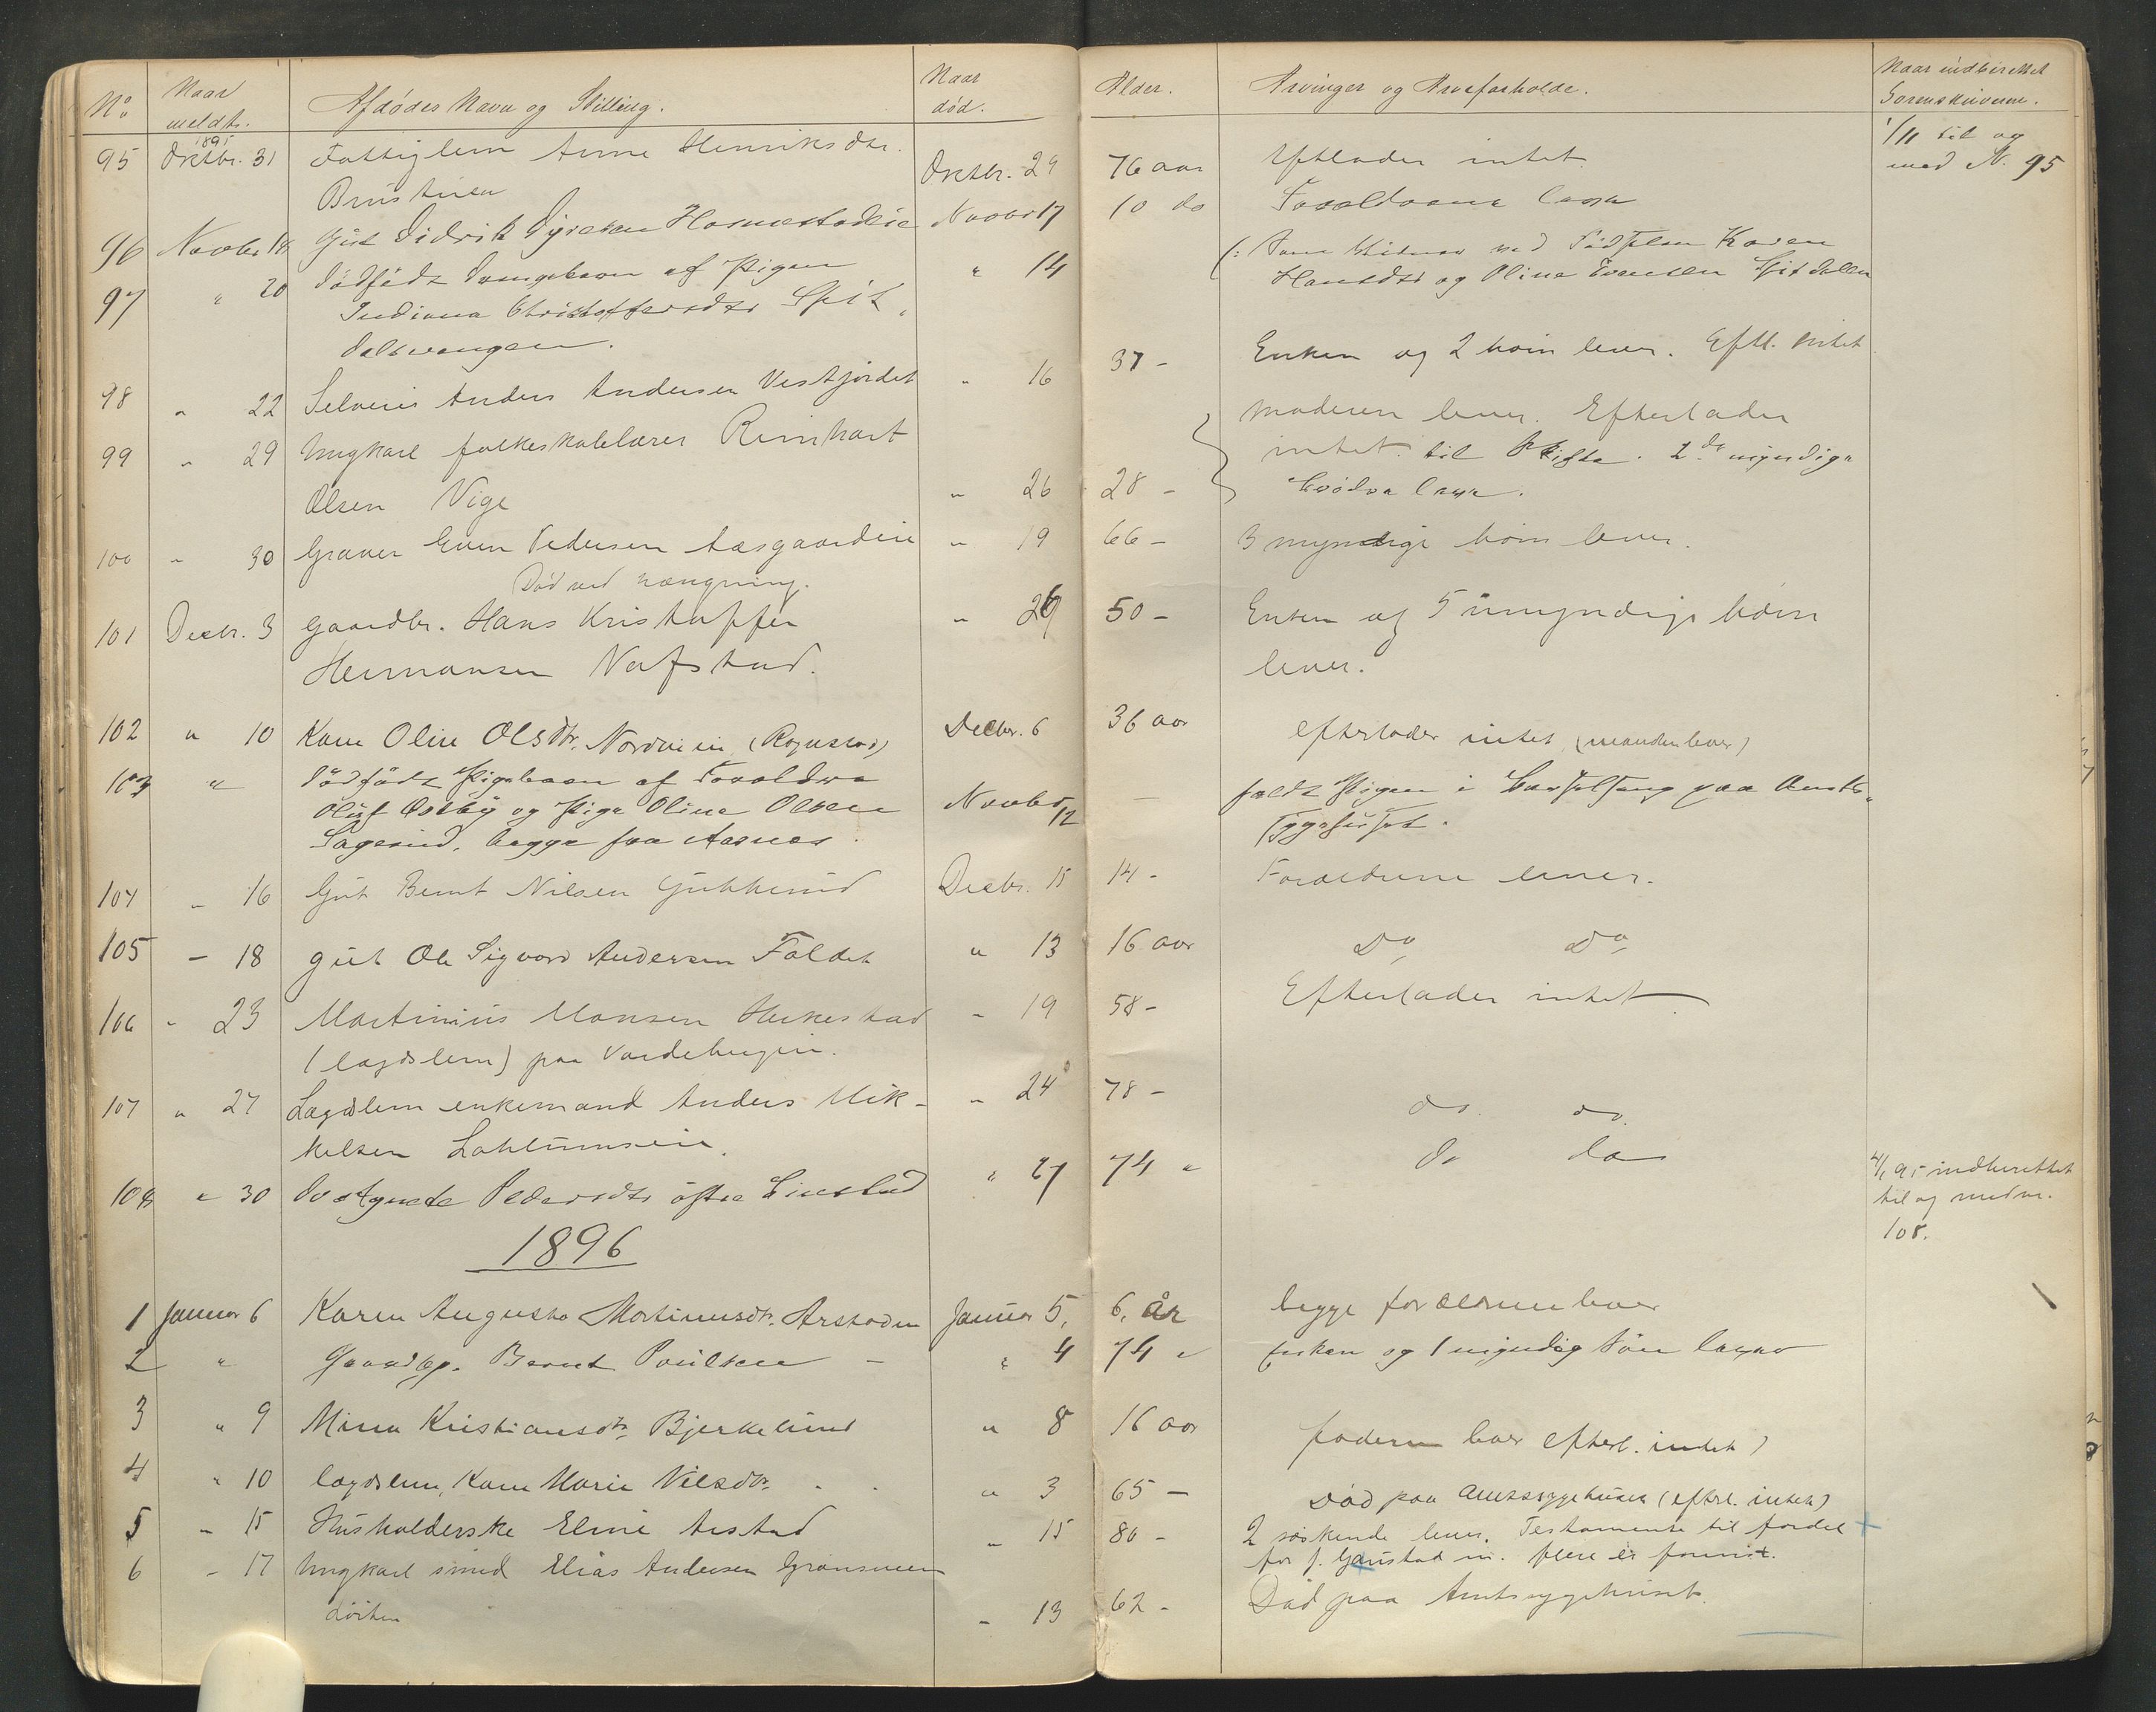 No Naar meldt. Afdødes Navn og Stilling. Naar død. Alder. Arvinger og Arveforholde. Naar indberettet Sorenskriveren.
1895
95 Oktbr. 31 Fattiglem Anne Henriksdtr. Oktbr. 29 76 aar Efterlader intet 1/11 til og
med N. 95
96 Novbr 18 Gut Didrik Novbr 17 10 do Forældrene lever
97 " 20 Dødfødt Drengebarn af Pigen " 14
Indiana Christoffersdtr Spit
dalsvangen.
Hansdtr og Oline Evensen Spitdalen
98 " 22 Selveier Anders Andersen Vestjordet " 16 37 - Enken og 2 børn lever. Efterl. intet
99 " 29 Ungkarl folkeskolelærer Reinhart Moderen lever. Efterlader
Olsen Vige " 26 28 - intet til Skifte. 2de myndige
Brødre lever.
100 " 30 Graver Even Pedersen Aasgaardeie " 19 66 - 3 myndige børn lever.
Død ved hængning.
101 Decbr. 3 Gaardbr. Hans Kristoffer " 29 50 - Enken og 5 umyndige børn
Hermansen Nafstad. lever.
102 " 10 Karen Oline Olsdtr. Decbr. 6 36 aar efterlader intet (manden lever)
103 " Dødfødt Pigebarn af Forældre
Oluf Østby og Pige Oline Olsen Novbr 12 - født Pigen i Barselseng paa Amts-
begge fra Aasnes. sygehuset.
104 " 16 Gut Bernt Nilsen Decbr. 15 14 - Forældrene lever.
105 - 18 gut Ole Sigvard Andersen Faldet " 13 16 aar Do Do
106 " 23 Martinius Monsen " 19 58 - Efterlader intet
(lægdslem) paa
107 " 27 Lægdslem enkemand Anders Mik- " 24 78 - do. do.
kelsen
108 " 30 Pedersdtr " 27 74 " do do 4/1 95 indberettet
til og med nr.
108.
1896
1 Januar 6 Karen Augusta Martinusdtr. Arstaden Januar 5, 6, år begge forældrene lever
2 " Gaardbr. Bernt Poulsen - " 4 74 " Enken og 1 myndig Søn lever
3 " 9 Mina Kristiansdtr. Bjerkelund " 8 16 aar faderen lever efterl. intet)
4 " 10 lægdslem, Karen Marie Nilsdtr. " 3 65 - Død paa Amtssygehuset (efterl. intet)
5 - 15 Husholderske Eline Arstad " 15 80 - 2 søskende lever. Testamente til fordel
for J. Gaustad m. flere er forevist.
6 - 17 Ungkarl smed Elias Andersen
Løiten - 13 62 - Død paa Amtssygehuset.